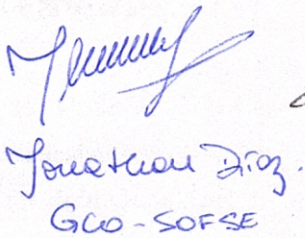 Jonathan Diaz.
GCO-SOFSE